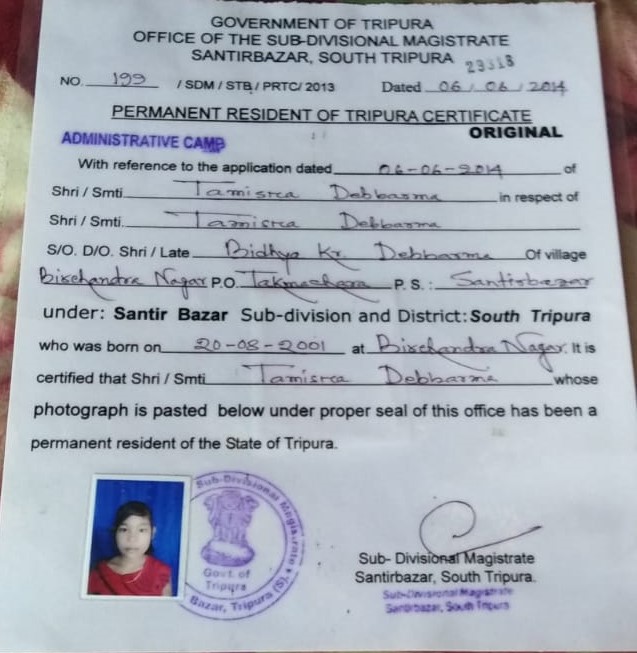 GOVERNMENT OF TRIPURA
OFFICE OF THE SUB-DIVISIONAL MAGISTRATE
SANTIRBAZAR, SOUTH TRIPURA 23313
NO. 199 / SDM / STB / PRTC/ 2013 Dated 06/06/2014
PERMANENT RESIDENT OF TRIPURA CERTIFICATE
ORIGINAL
ADMINISTRATIVE CAMP
With reference to the application dated 06-06-2014 of
Shri / Smti Tamisra Debbarma in respect of
Shri / Smti. Tamisra Debbarma
S/O. D/O. Shri / Late Bidhya Kr. Debbarma Of village
Birchandra Nagar P.O. Takmachara P. S. : Santirbazar
under: Santir Bazar Sub-division and District: South Tripura
who was born on 20-08-2001 at Birchandra Nagar. It is
certified that Shri / Smti Tamisra Debbarma whose
photograph is pasted below under proper seal of this office has been a
permanent resident of the State of Tripura.
Sub-Divisional Magistrate
Govt. of
Tripura
Bazar, Tripura (S)
Sub- Divisional Magistrate
Santirbazar, South Tripura.
Sub-Divisional Magistrate
Santirbazar, South Tripura